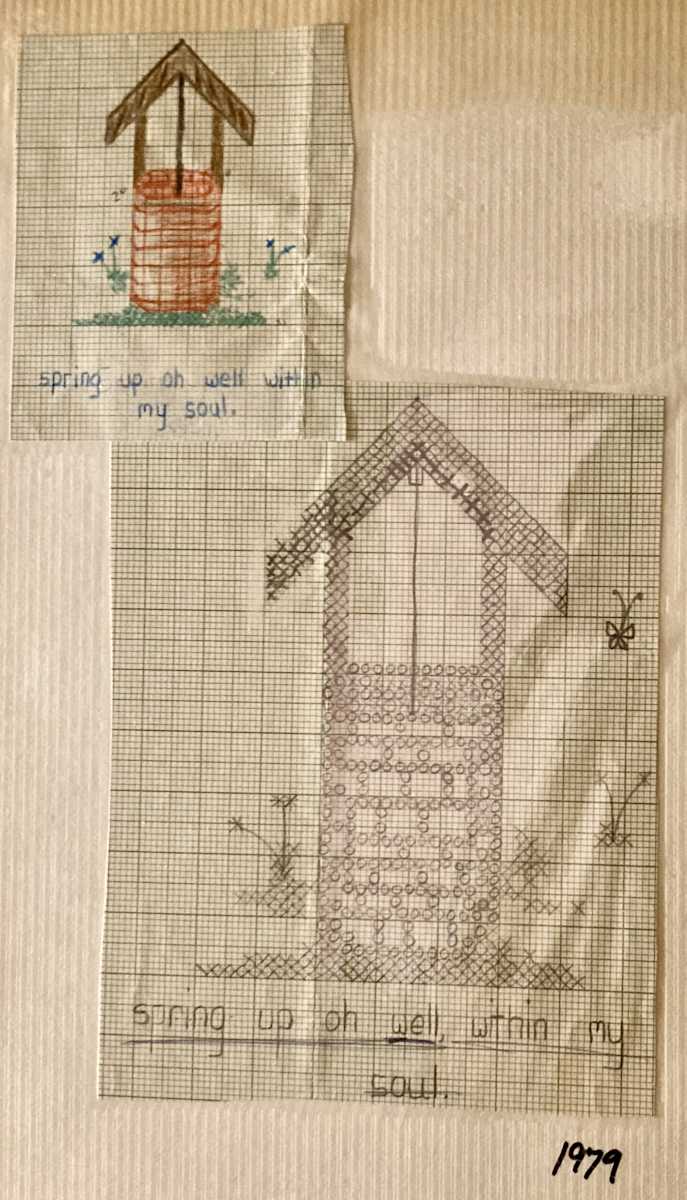 spring up oh well within
my soul.
spring up oh well, within my
soul.
1979